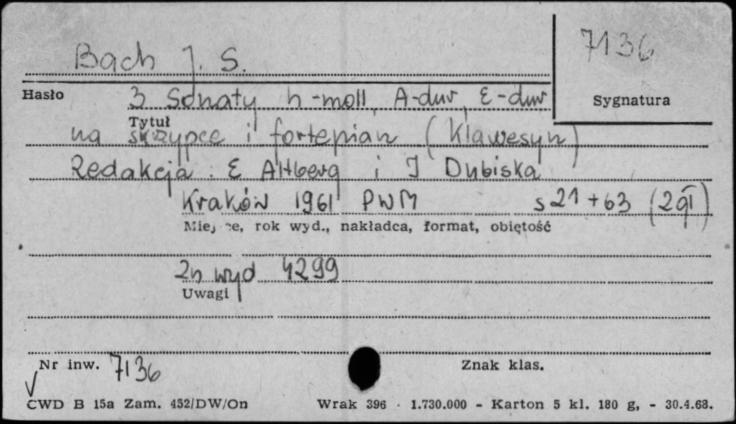 Bach J. S.
7136
Hasło
3 Sonaty h-moll, A-dur, E-dur
Sygnatura
Tytuł
na skrzypce i fortepian (Klawesyn)
Redakcja: E Altberg i I Dubiska
Kraków 1961 PWM s 21 + 63 (2 gł)
Miejsce, rok wyd., nakładca, format, objętość
Zn wyd 4299
Uwagi
Nr inw. 7136
Znak klas.
CWD B 15a Zam. 452/DW/On Wrak 396 · 1.730.000 - Karton 5 kl. 180 g, - 30.4.68.